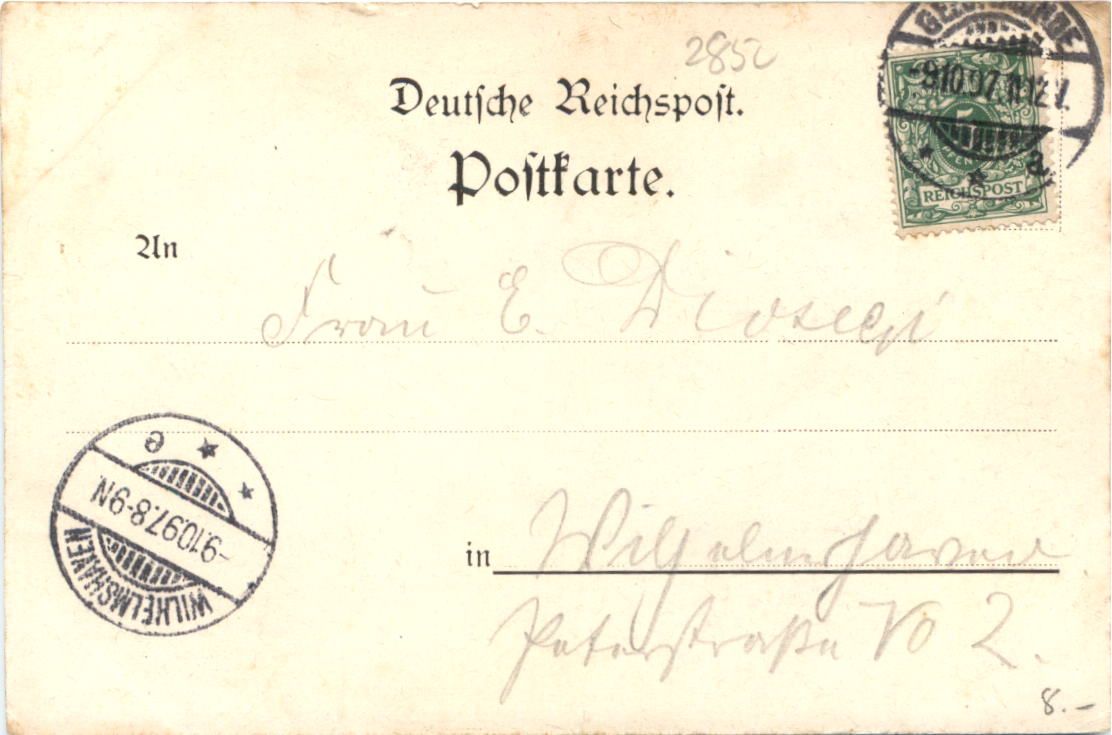 2852
Deutsche Reichspost.
Postkarte.
-9.10.97. 11-12 V.
a.
5
PFENNIG
REICHSPOST
An
Frau E.
e
-9.10.97.8-9N
WILHELMSHAVEN
in Wilhelmshaven
Peterstraße No 2.
8.-